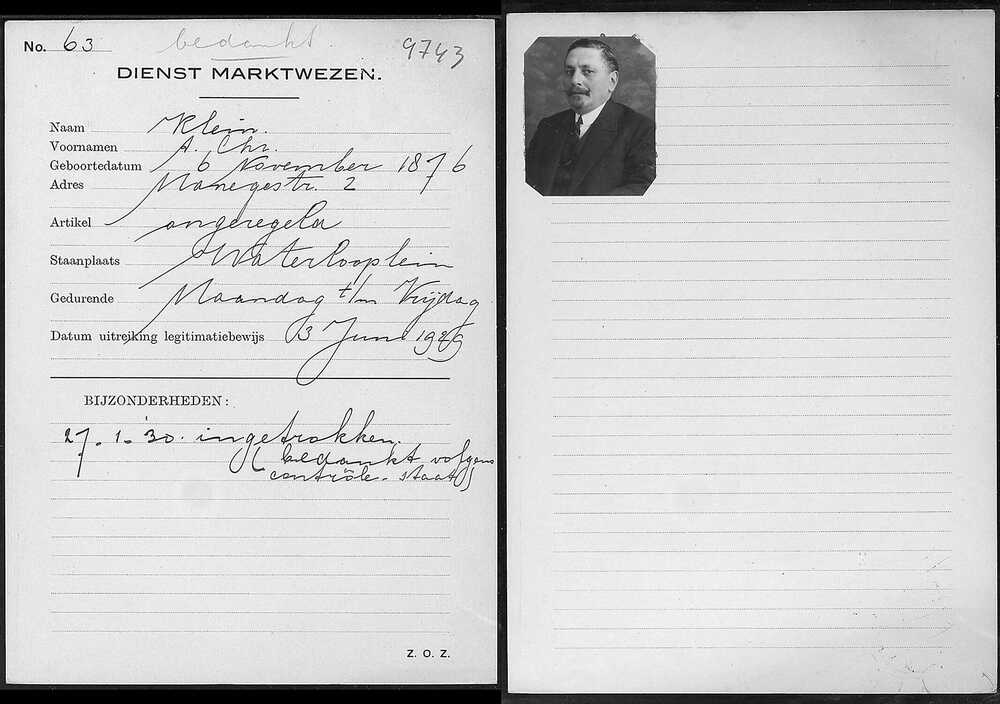 No. 63 bedankt. 9743
DIENST MARKTWEZEN.
Naam Klein.
Voornamen A. Chr.
Geboortedatum 6 November 1876
Adres Manegestr. 2
Artikel ongeregeld
Staanplaats Waterlooplein
Gedurende Maandag t/m Vrijdag
Datum uitreiking legitimatiebewijs 3 Juni 1929
BIJZONDERHEDEN:
27.1.'30. ingetrokken.
(bedankt volgens
contrôle-staat)
Z. O. Z.